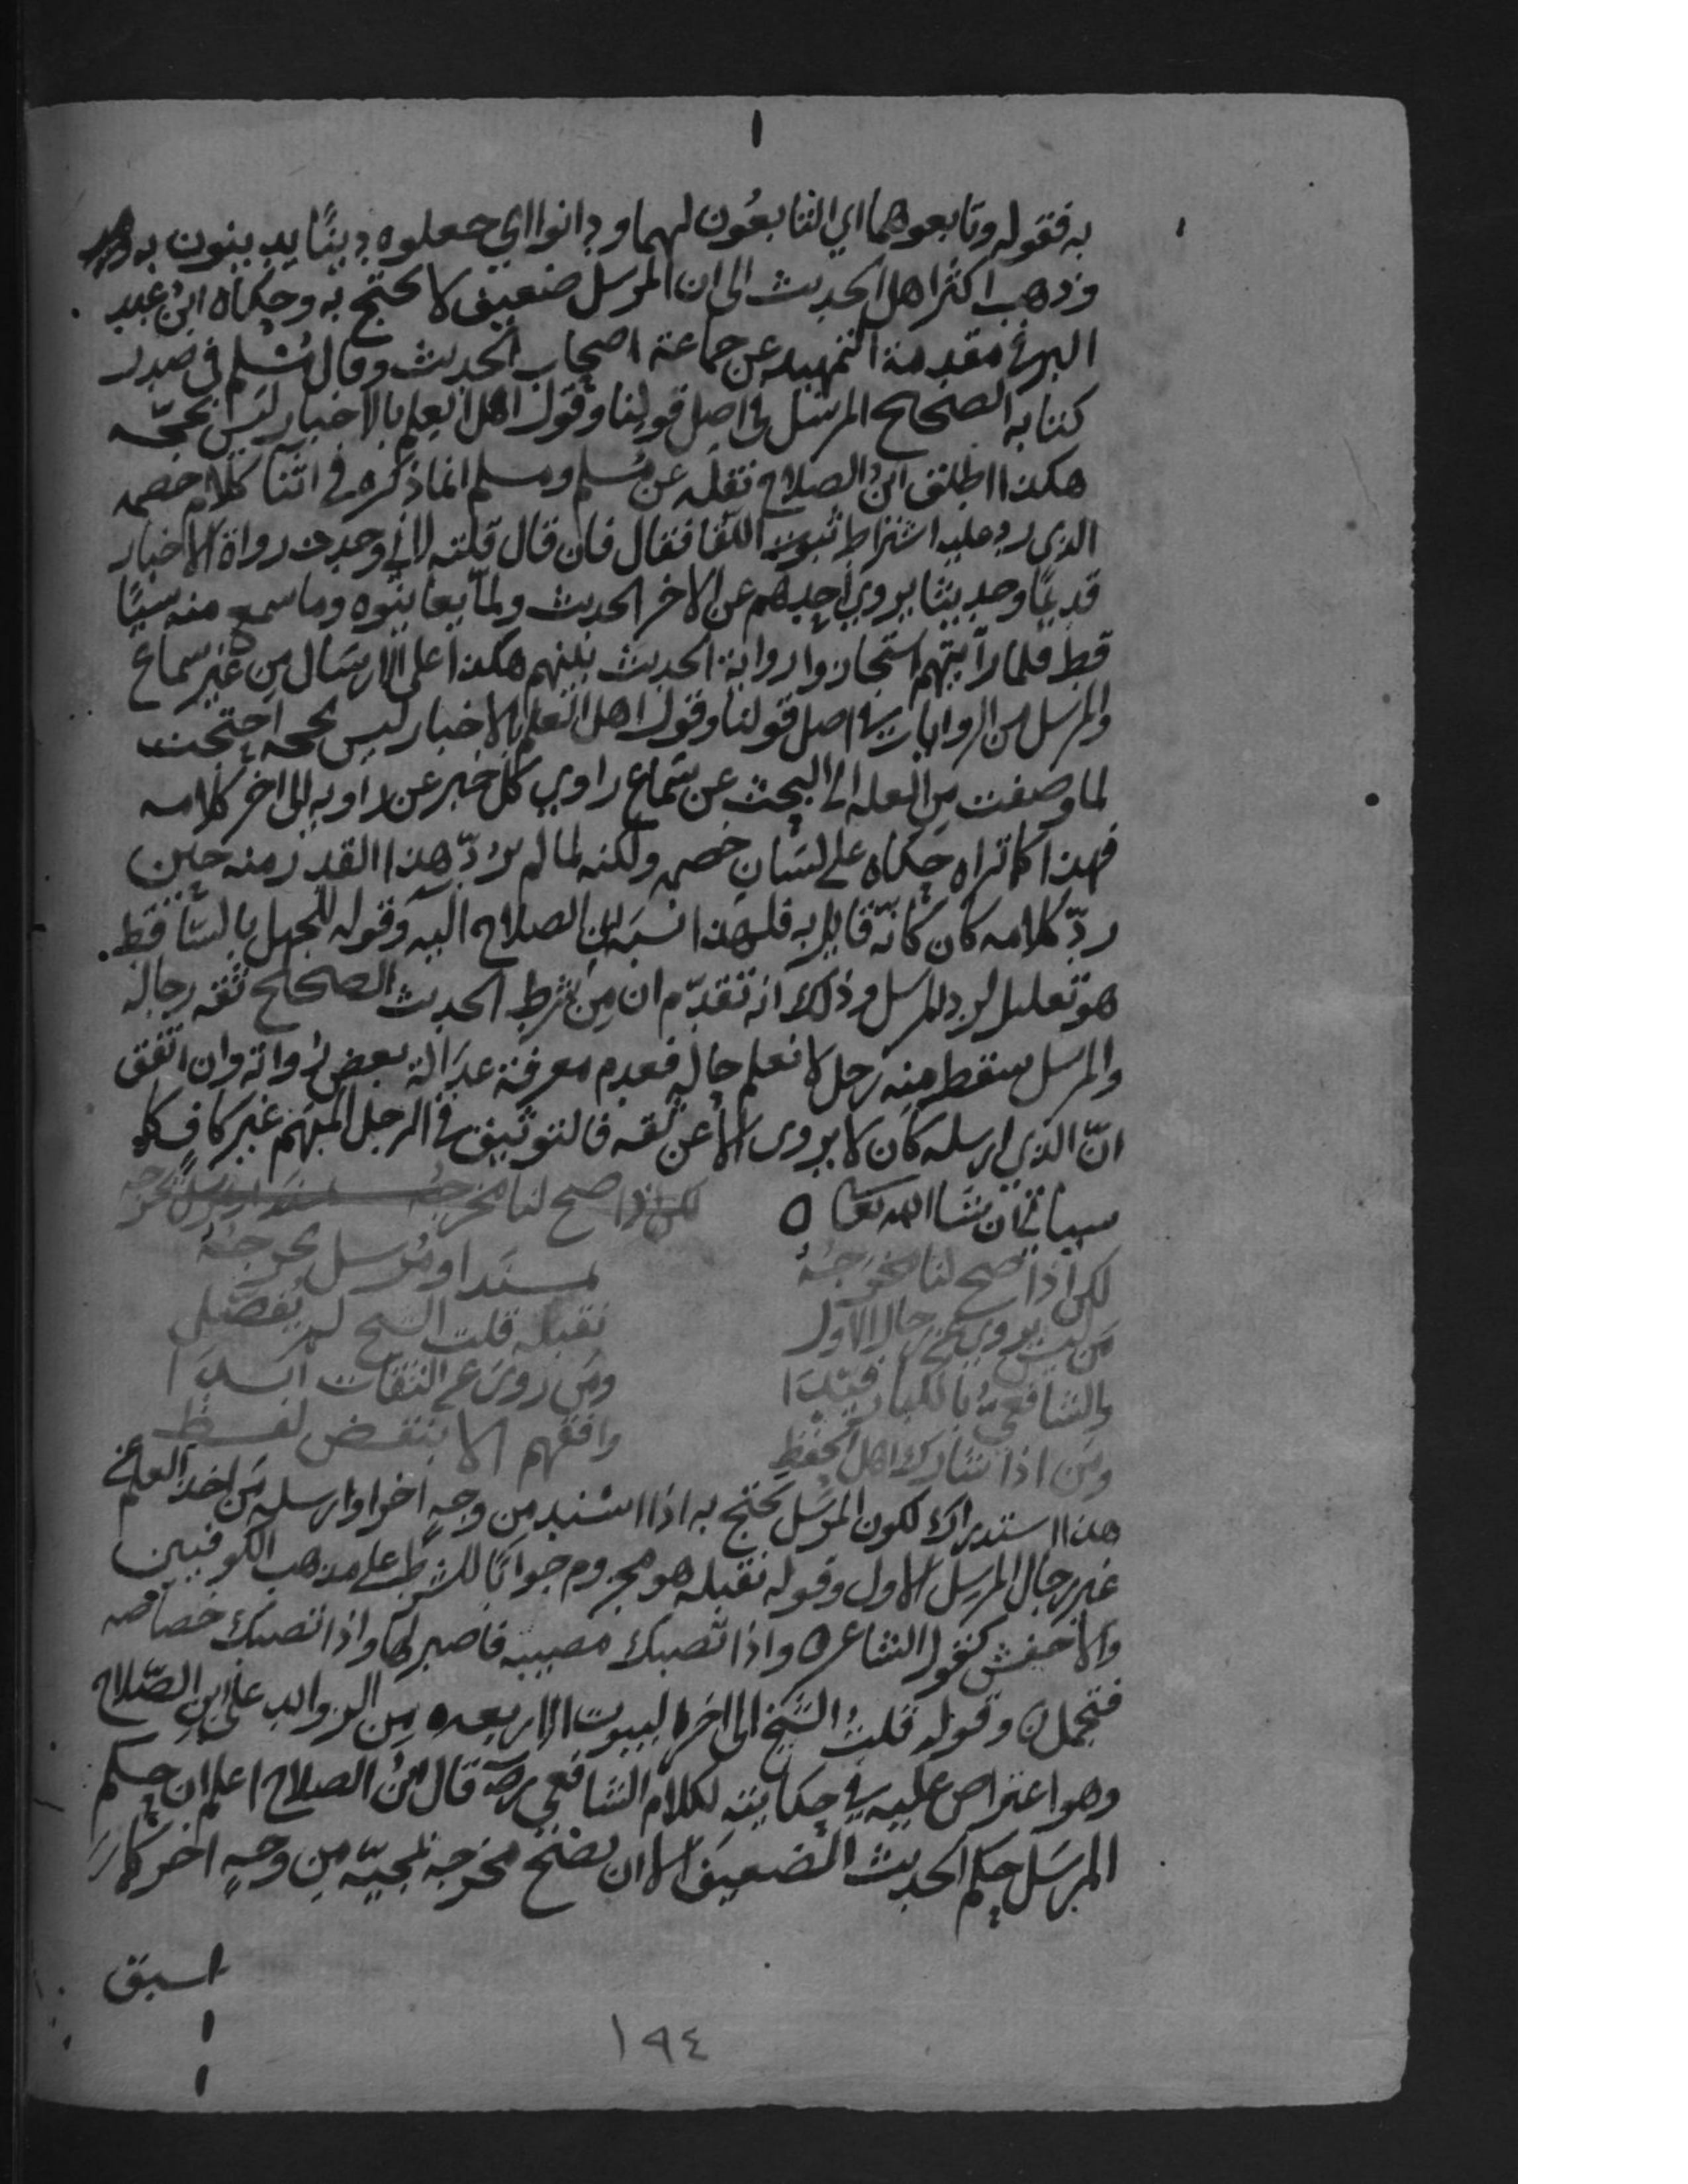 به فقوله وتابعوهما اي التابعون لهما ودانوا اي جعلوه دينًا يدينون به
وذهب اكثر اهل الحديث الى ان المرسل ضعيف لا يحتج به وحكاه ابن عبد
البر في مقدمة التمهيد عن جماعة اصحاب الحديث وقال مسلم في صدر
كتابه الصحيح المرسل في اصل قولنا وقول اهل العلم بالاخبار ليس بحجّه
هكذا اطلق ابن الصلاح نقله عن مسلم ومسلم انما ذكره في اثنا كلام خصمه
الذي رد عليه اشتراط ثبوت اللقا فقال فان قال قلته لاني وجدت رواة الاخبار
قديمًا وحديثا يروي احدهم عن الاخر الحديث ولمّا يعاينوه وما سمع منه شيئًا
قط فلما رأيتهم استجازوا رواية الحديث بينهم هكذا على الارسال من غير سماع
والمرسل من الروايات في اصل قولنا وقول اهل العلم بالاخبار ليس بحجه احتجت
لما وصفت من العله الى البحث عن سماع راوي كل خبر عن راويه الى اخر كلامه
فهذا كما تراه حكاه على لسان خصمه ولكنه لما لم يردّ هذا القدر منه حين
ردّ كلامه كان كانّه قايل به فلهذا نسبه ابن الصلاح اليه وقوله للجهل بالساقط
هو تعليل لرد المرسل وذلك انه تقدّم ان من شرط الحديث الصحيح ثقه رجاله
والمرسل سقط منه رجل لا نعلم حاله فعدم معرفة عدالة بعض رواته وان اتفق
انّ الذي ارسله كان لا يروي الا عن ثقه فالتوثيق في الرجل المبهم غير كاف كما
سياتي ان شا الله تعا ه لكن اذا صح لنا مخرجه مسند او مرسل يخرجه
لكن اذا صح لنا مخرجُهُ بمسندٍ او مُرسل يخرجهُ
من ليس يروي عن رجال الاول نقبله قلت الشيخ لم يفصّل
والشافعيُّ بالكبار قيّدا ومن روى عن الثقات ابدا
ومن اذا شارك اهل الحفظِ وافقهم الا بنقض لفظ
هذا استدراك لكون المرسل يحتج به اذا اسند من وجهٍ اخر او ارسله من اخذ العلم عن
غير رجال المرسل الاول وقوله نقبله هو مجزوم جوابًا للشرط على مذهب الكوفيين
والاخفش كقول الشاعر ه واذا تصبك مصيبه فاصبر لها واذا تصبك خصاصه
فتجمل ه وقوله قلت الشيخ الى اخر البيوت الاربعه من الزوايد على ابن الصّلاح
وهو اعتراض عليه في حكايته لكلام الشافعي رضه قال ابن الصلاح اعلم ان حكم
المرسل حكم الحديث الضعيف الا ان يصحّ مخرجه بمجيّه من وجهٍ اخر كما
سبق
١٩٤